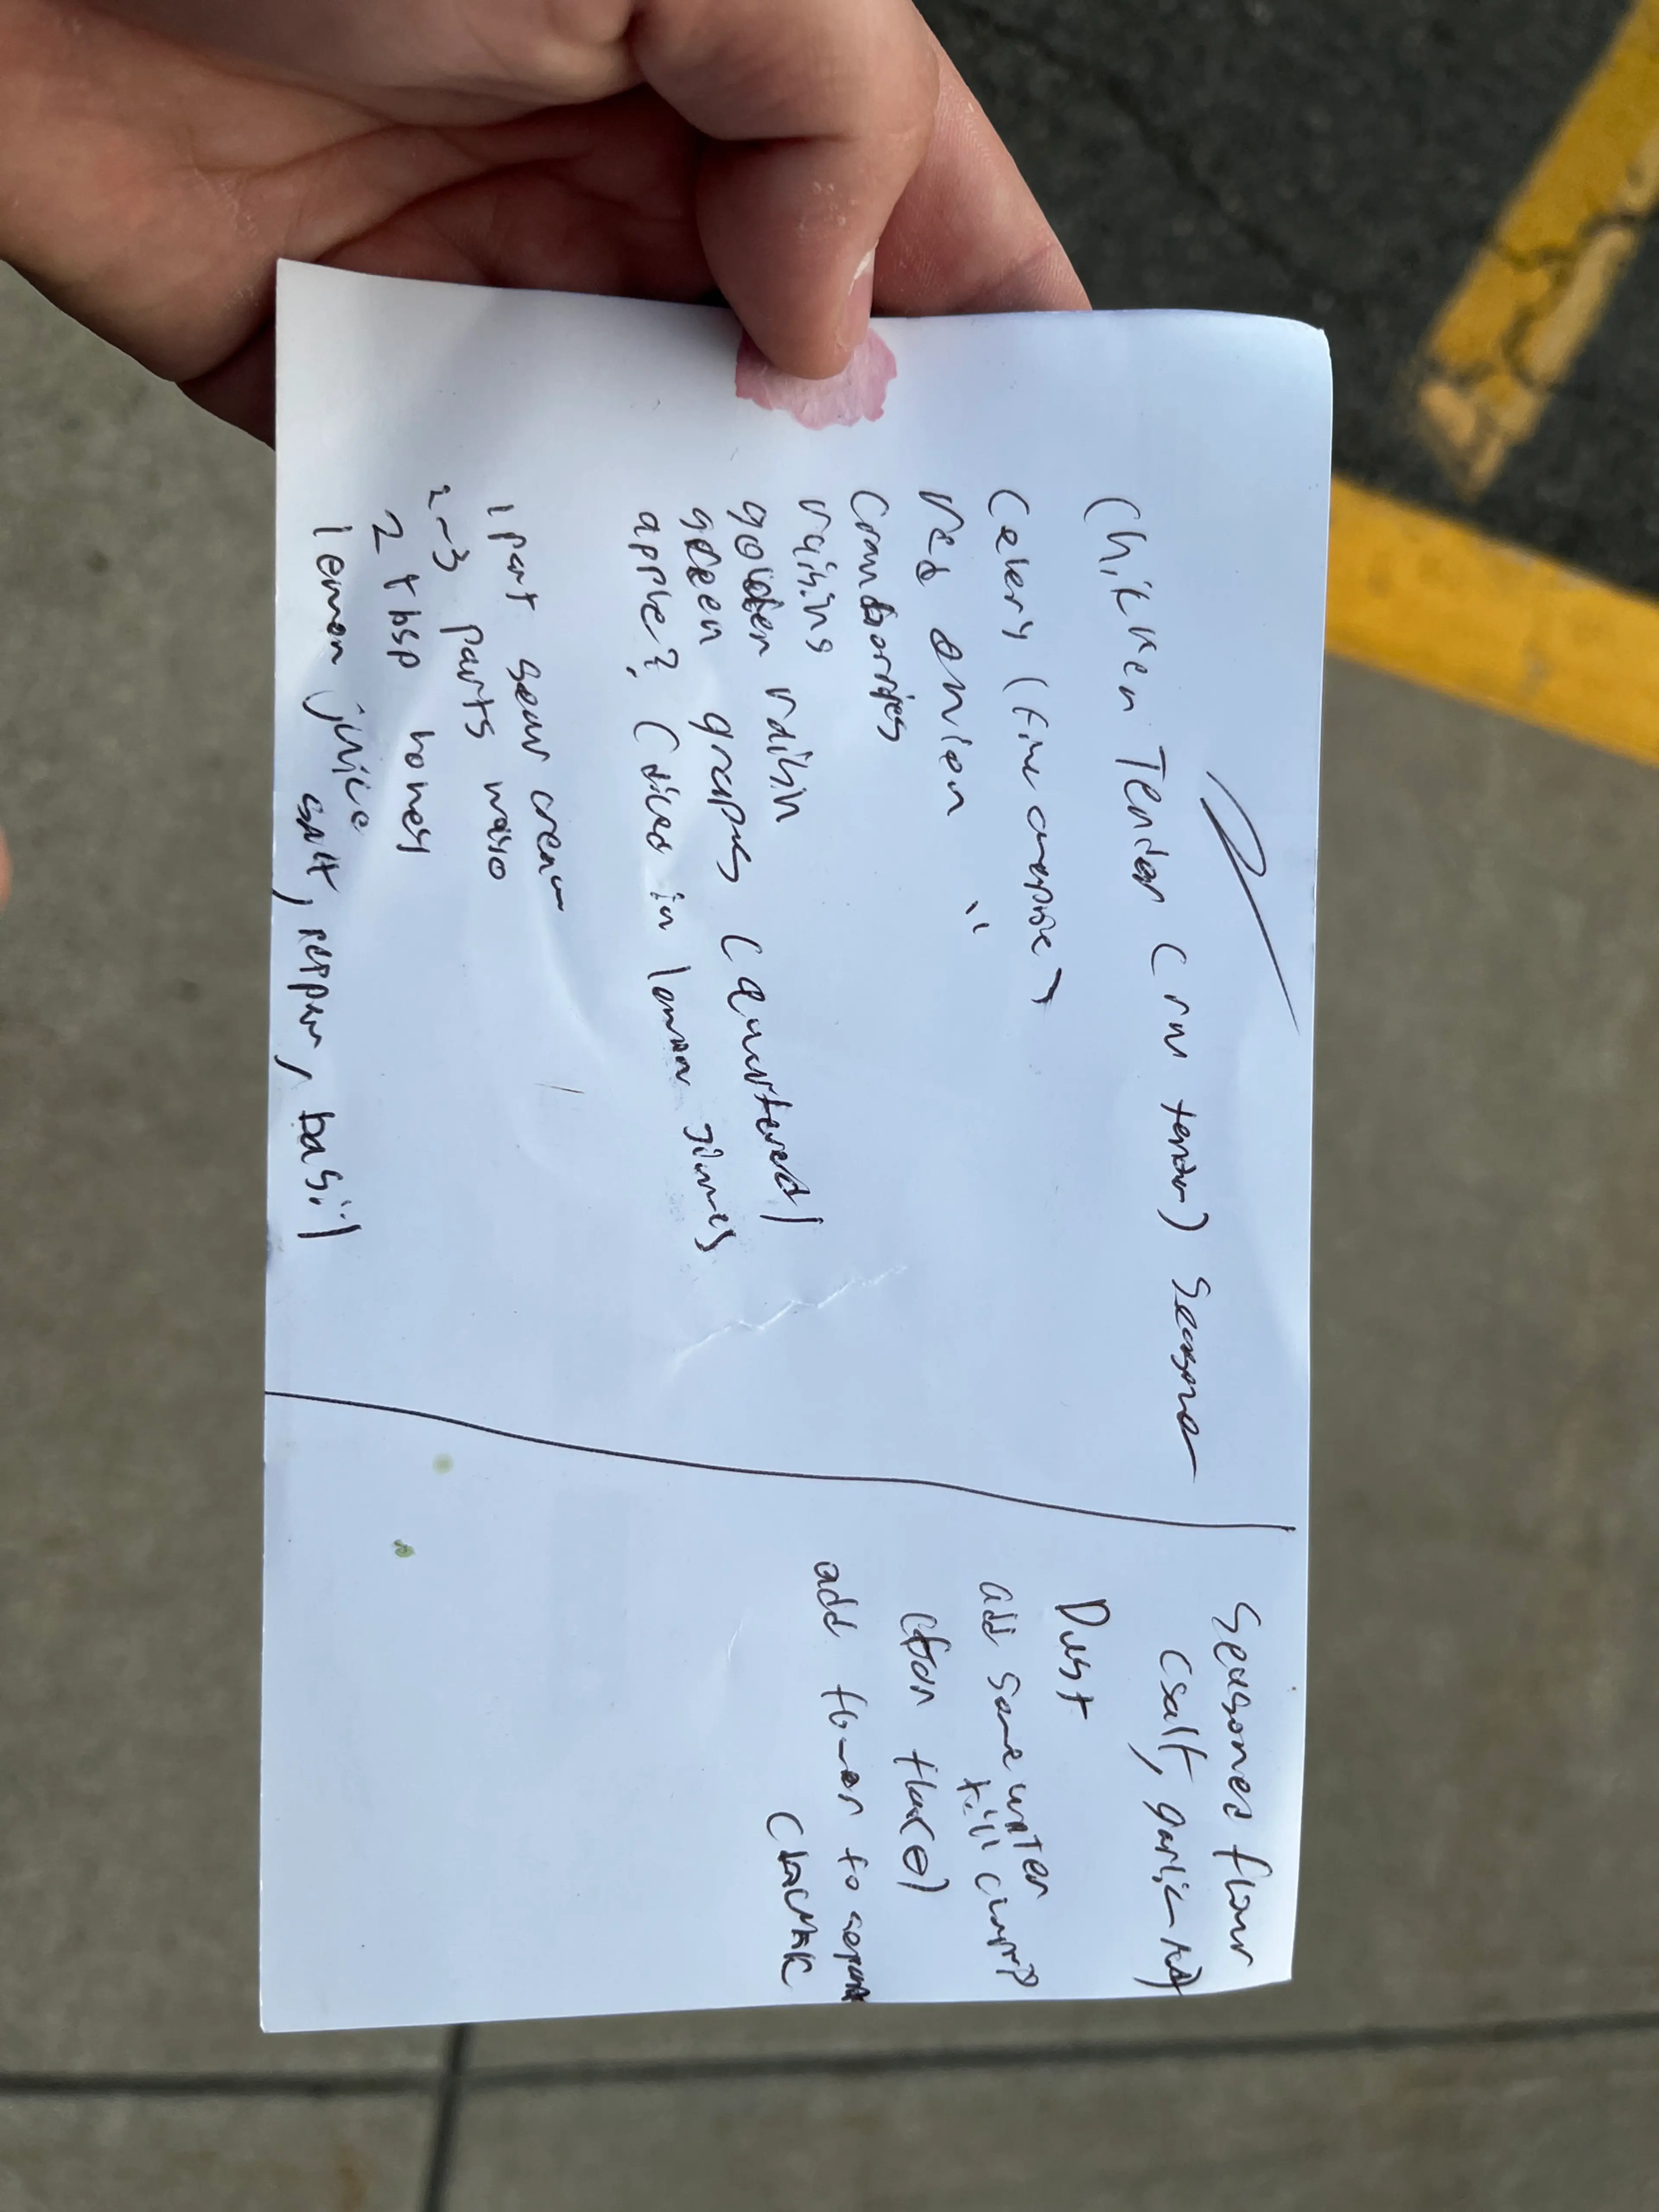 Chicken Tender ( tender) season
Celery (fine
red onion "
Cranborries
raisins
golden raisin
green grapes (quartered)
apple? (diced in lemon
1 part sour cream
2-3 parts mayo
2 tbsp honey
lemon juice
salt, pepper, basil
Seasoned flour
(salt, garlic
Dust
add some water
till clump
(from flour)
add flour to